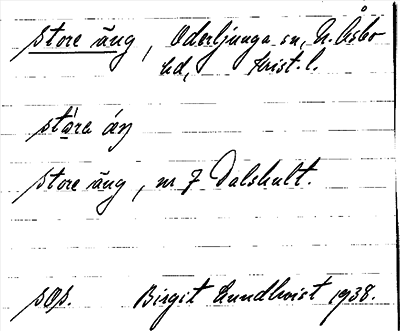 store äng, Oderljunga sn, N. Åsbo
hd, Krist. l.
stàra áŋ
store äng, nr 7 Dalshult.
sOp. Birgit Lundkvist 1938.